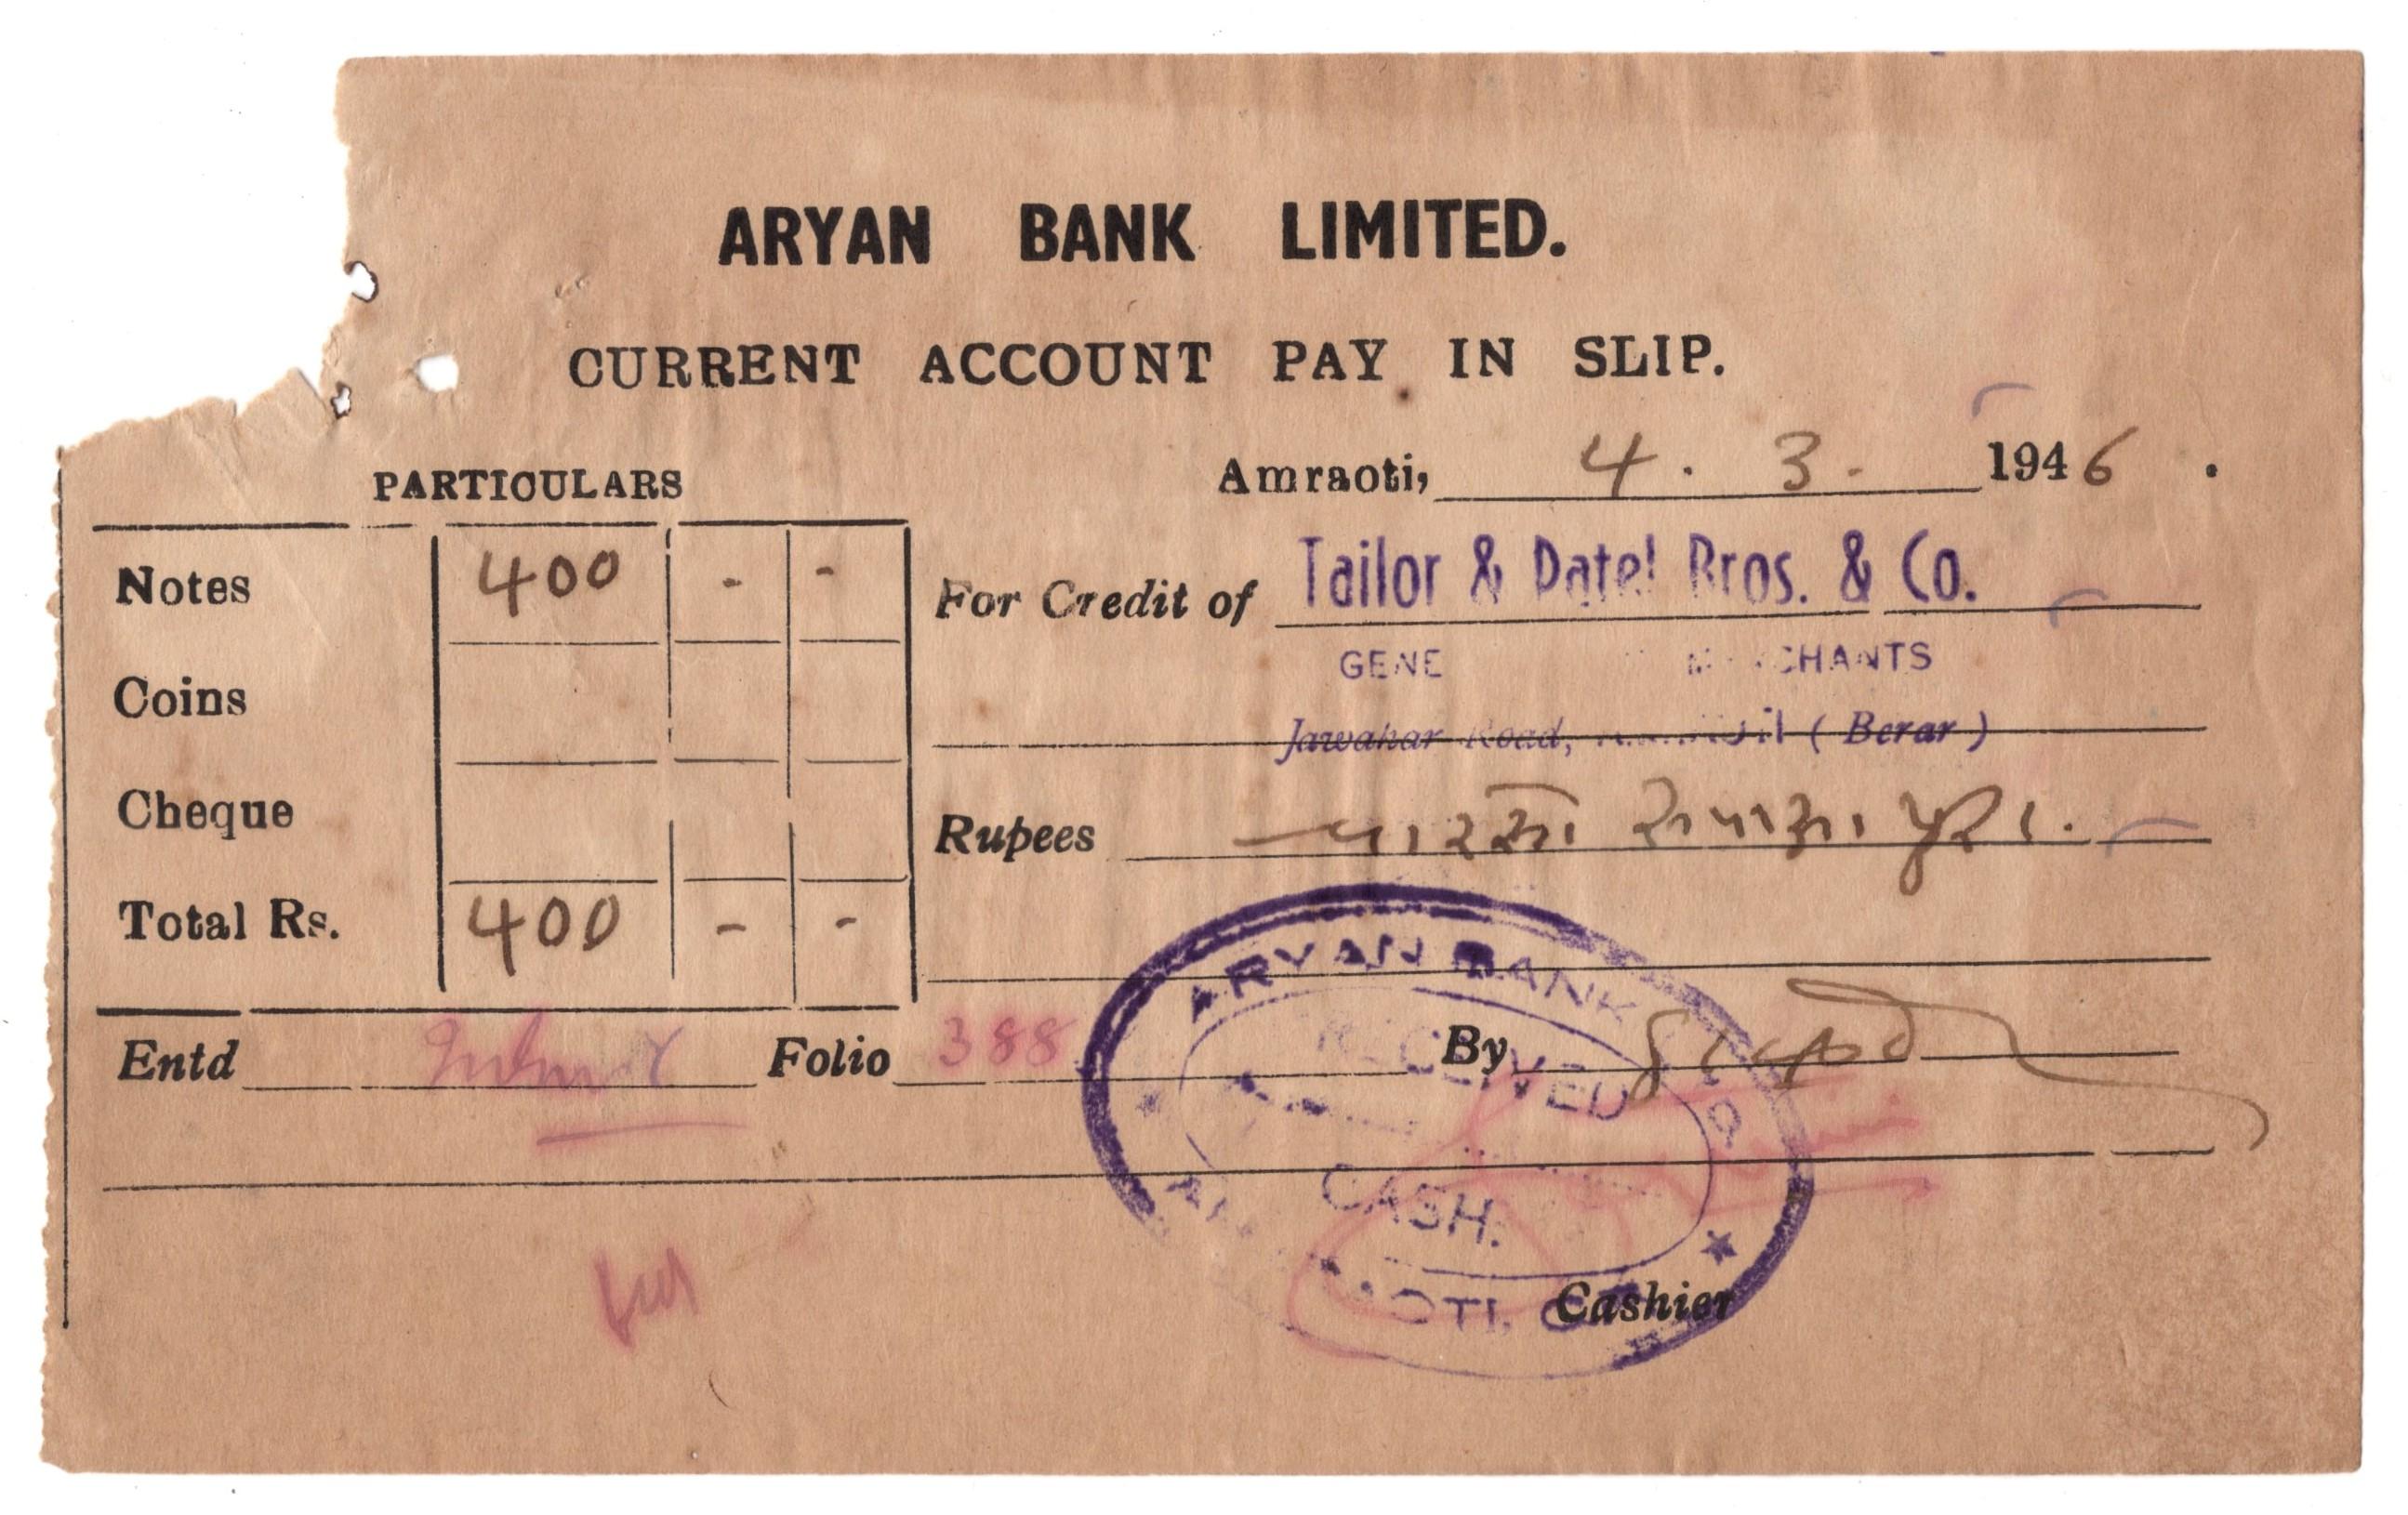 ARYAN BANK LIMITED.
CURRENT ACCOUNT PAY IN SLIP.
Amraoti, 4. 3. 1946.
PARTICULARS
Notes 400 - -
Coins
Cheque
Total Rs. 400 - -
For Credit of Tailor & Patel Bros. & Co.
GENE CHANTS
Jawahar Road, (Berar)
Rupees
Entd Folio 388 By
ARYAN BANK
RECEIVED
CASH.
OTI.
Cashier